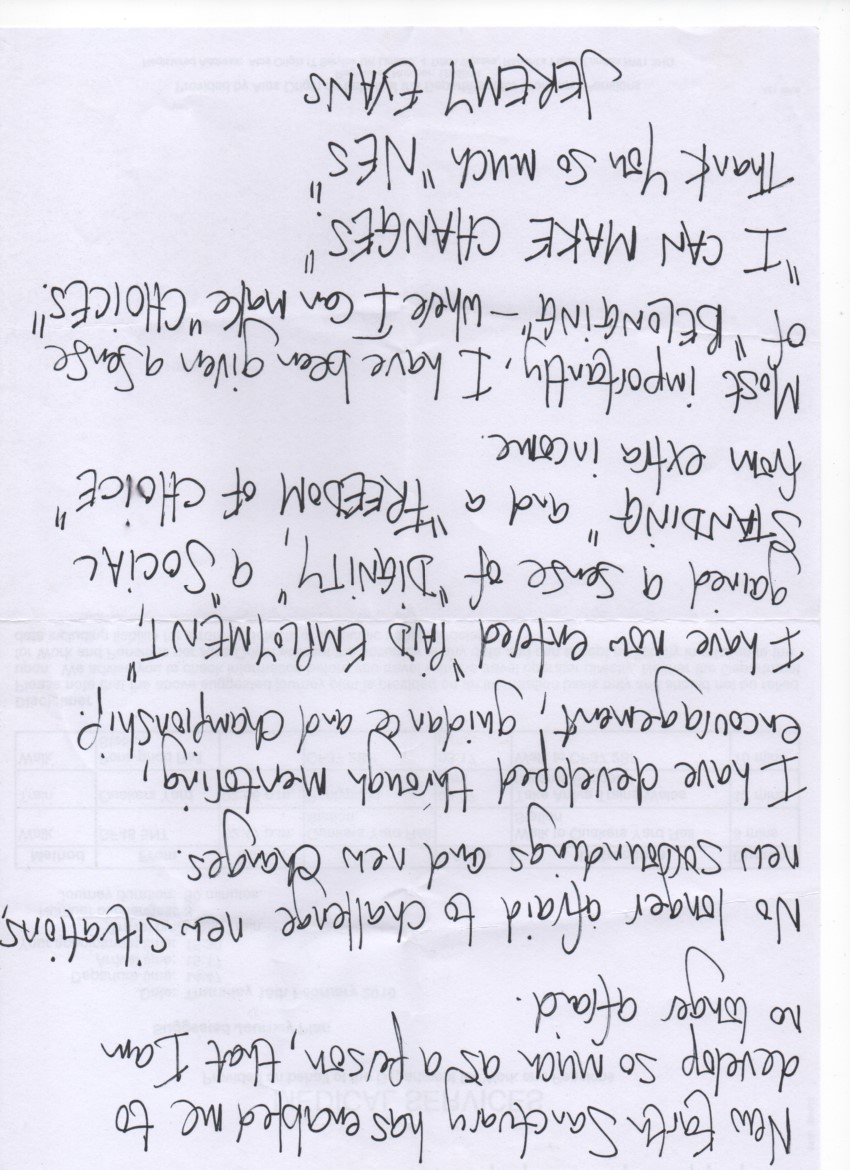 New Earth Sanctuary has enabled me to
develop so much as a person, that I am
no longer afraid.
No longer afraid to challenge new situations,
new surroundings and new changes.
I have developed through mentoring,
encouragement, guidance and championship.
I have now entered "PAID EMPLOYMENT",
gained a sense of "DIGNITY", a "SOCIAL
STANDING" and a "FREEDOM OF CHOICE"
from extra income.
Most importantly, I have been given a sense
of "BELONGING" – where I can make "CHOICES."
"I CAN MAKE CHANGES."
Thank You so much "NES"
JEREMY EVANS